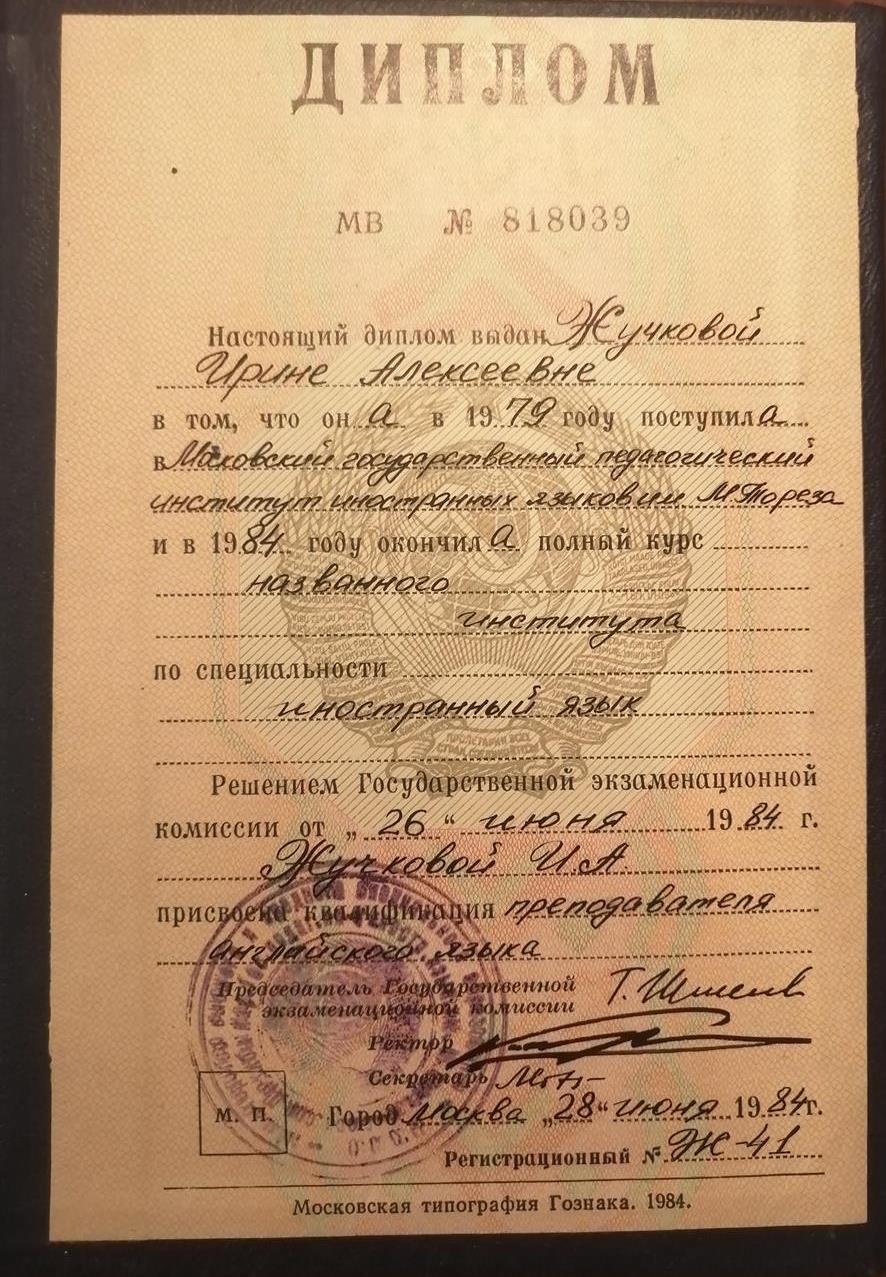 ДИПЛОМ
МВ № 818039
Настоящий диплом выдан Жучковой
Ирине Алексеевне
в том, что он а в 1979 году поступила
в Московский государственный педагогический
институт иностранных языков им. М. Тореза
и в 1984 году окончила полный курс
названного
института
по специальности
иностранный язык
Решением Государственной экзаменационной
комиссии от „26“ июня 1984 г.
Жучковой И.А.
присвоена квалификация преподавателя
английского языка
Председатель Государственной
экзаменационной комиссии
Ректор
Секретарь
М. П. Город Москва „28“ июня 1984г.
Регистрационный № Ж-41
Московская типография Гознака. 1984.